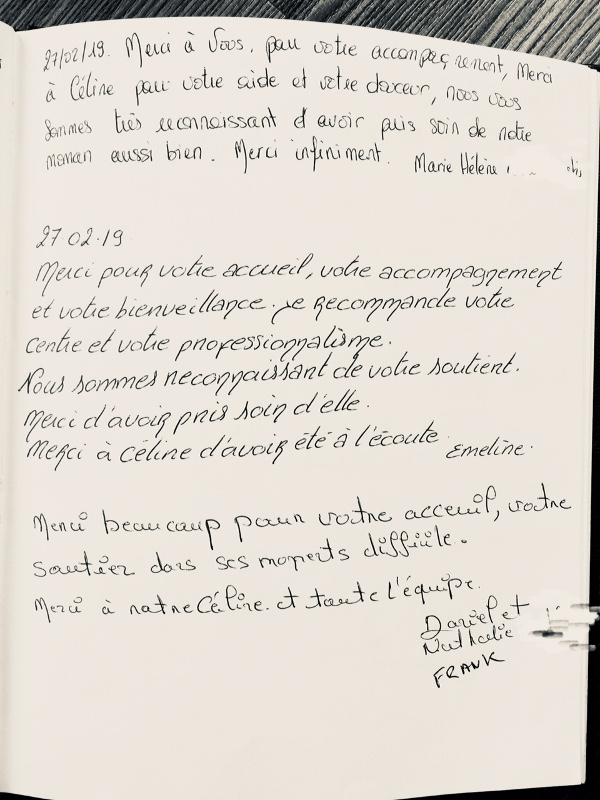 27/02/19. Merci à Vous, pour votre accompagnement, Merci
à Céline pour votre aide et votre douceur, nous vous
sommes très reconnaissant d'avoir pris soin de notre
maman aussi bien. Merci infiniment. Marie Hélène
27 02.19
Merci pour votre accueil, votre accompagnement
et votre bienveillance. Je Recommande votre
centre et votre professionnalisme.
Nous sommes reconnaissant de votre soutient.
Merci d'avoir pris soin d'elle.
Merci à Céline d'avoir été à l'écoute.
Emeline.
Merci beaucoup pour votre acceuil, votre
soutien dans ses moments difficile.
Merci à notre Céline. et toute l'équipe.
Daniel et
Nathalie
FRANK